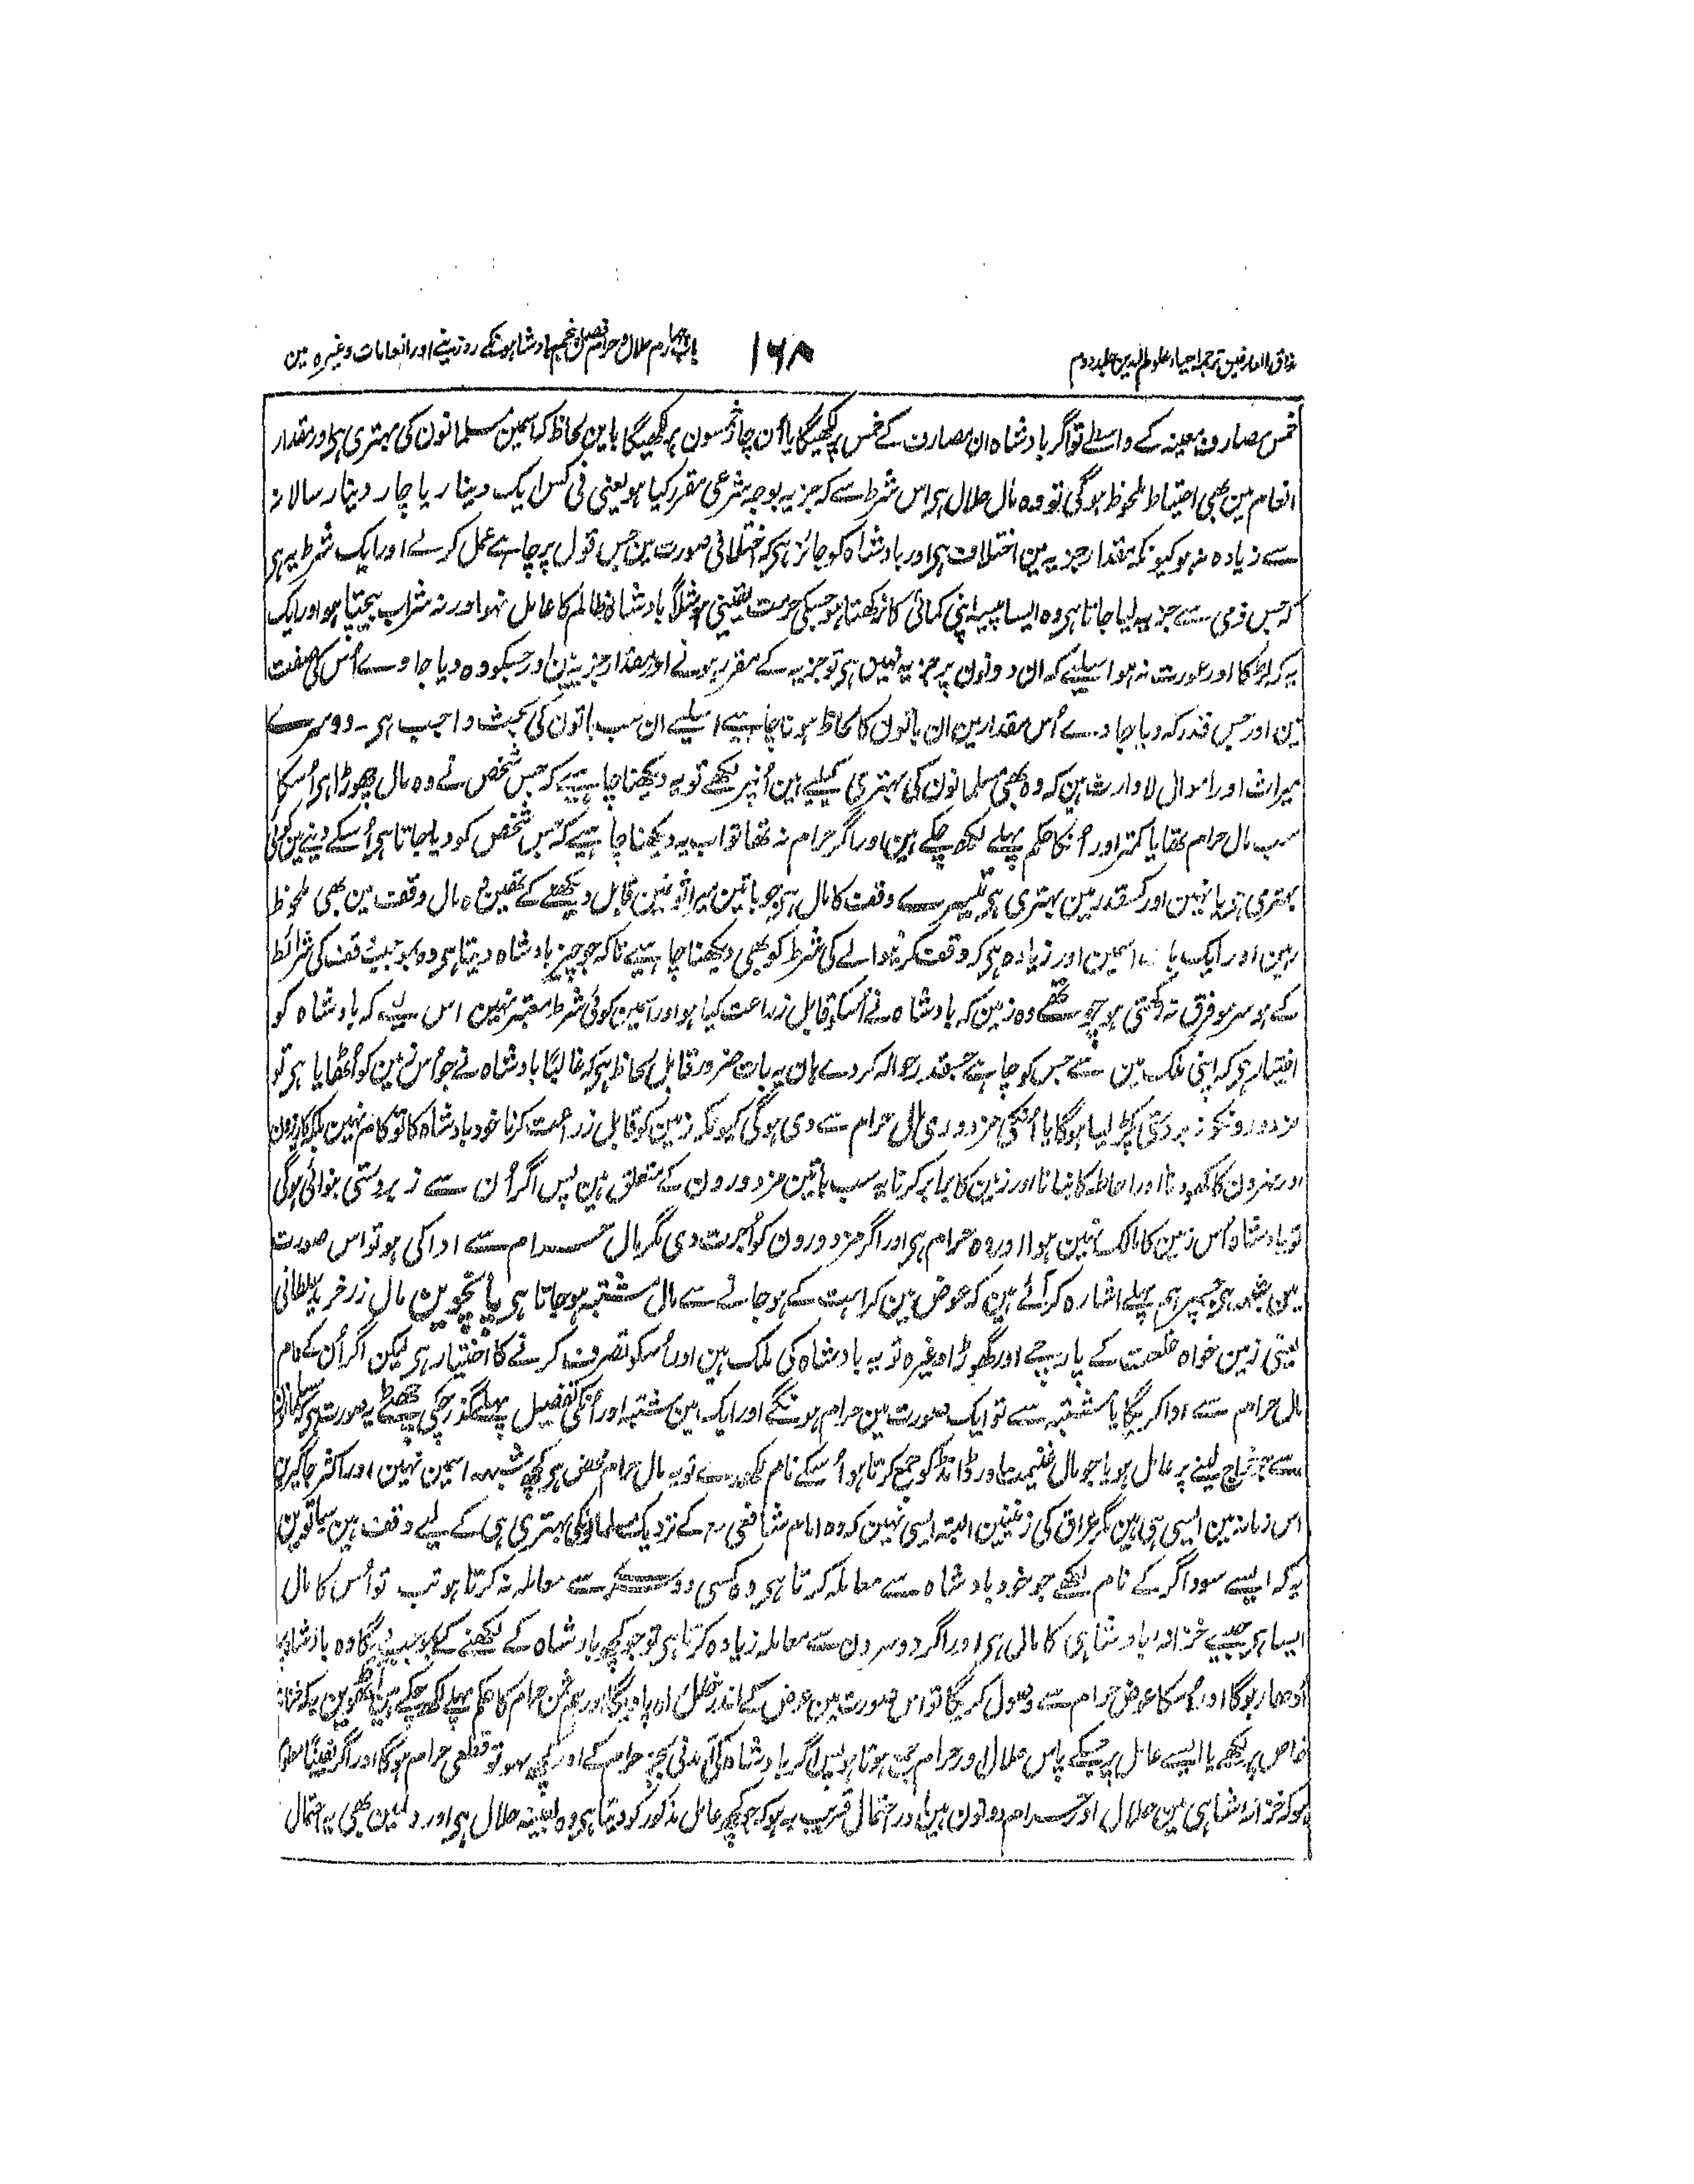 مذاق العارفین ترجمہ احیاء علوم الدین جلد دوم
۱۶۸
باب چہارم حلال و حرام فصل پنجم بادشاہونکے روزینے اور انعامات وغیرہ مین
خمس مصارف معینہ کے واسطے تو اگر بادشاہ ان مصارف کے خمس پر لکھیگا یا اُن چار خمسون پر لکھیگا باین لحاظ کہ اسمین مسلمانون کی بہتری ہی اور مقدار
انعام مین بھی احتیاط ملحوظ ہوگی تو وہ مال حلال ہی اس شرط سے کہ جزیہ بوجہ شرعی مقرر کیا ہو یعنی فی کس ایک دینار یا چار دینار سالانہ
سے زیادہ نہو کیونکہ مقدار جزیہ مین اختلاف ہی اور بادشاہ کو جائز ہی کہ اختلافی صورت مین جس قول پر چاہے عمل کرے اور ایک شرط یہ ہی
کہ جس ذمی سے جزیہ لیا جاتا ہی وہ ایسا پیسہ اپنی کمائی کا نرکھتا ہو جسکی حرمت یقینی ہو مثلاً بادشاہ ظالم کا عامل نہو اور نہ شراب بیچتا ہو اور ایک
یہ کہ لڑکا اور عورت نہ ہو اسلیئے کہ ان دونون پر جزیہ نہین ہی تو جزیہ کے مقرر ہونے اور مقدار جزیہ مین اور جسکو وہ دیا جاوے اُس کی صفت
مین اور جس قدر کہ دیا جاوے اُس مقدار مین ان باتون کا لحاظ ہونا چاہیے اسلیے ان سب باتون کی بحث واجب ہی۔ دوسرے
میراث اور اموال لاوارث ہین کہ وہ بھی مسلمانون کی بہتری کیلیے ہین اُنپر لکھے تو یہ دیکھنا چاہیے کہ جس شخص نے وہ مال چھوڑا ہی اُسکا
سب مال حرام تھا یا کمتر اور اُنکا حکم پہلے لکھ چکے ہین اور اگر حرام نہ تھا تو اب یہ دیکھنا چاہیے کہ جس شخص کو دیا جاتا ہی اُسکے دینے مین کوئی
بہتری ہی یا نہین اور کسقدر مین بہتری ہی تیسرے وقف کا مال ہی جو باتین میراثو نمین قابل دیکھنے کے تھین وہ مال وقف مین بھی ملحوظ
رہین اور ایک بات اسمین اور زیادہ ہی کہ وقف کرنیوالے کی شرط کو بھی دیکھنا چاہیے تاکہ جو چیز بادشاہ دیتا ہی وہ بموجب وقف کی شرائط
کے ہو سرمو فرق نہ رکھتی ہو چوتھے وہ زمین کہ بادشاہ نے اُسکو قابل زراعت کیا ہو اور اسمین کوئی شرط معتبر نہین اس لیے کہ بادشاہ کو
اختیار ہی کہ اپنی ملک مین سے جس کو چاہے جسقدر حوالہ کر دے ہان یہ بات ضرور قابل لحاظ ہی کہ غالباً بادشاہ نے جو اُس زمین کو اُٹھایا ہی تو
مزدورونکو زبردستی پکڑ لیا ہوگا یا اُنکی مزدوری مال حرام سے دی ہوگی کیونکہ زمین کو قابل زراعت کرنا خود بادشاہ کا تو کام نہین بلکہ کاریزون
اور نہرون کا کھودنا اور احاطہ کا بنانا اور زمین کا برابر کرنا یہ سب باتین مزدورون کے متعلق ہین پس اگر اُن سے زبردستی بنوائی ہوگی
تو بادشاہ اُس زمین کا مالک نہین ہوا اور وہ حرام ہی اور اگر مزدورون کو اُجرت دی مگر مال حرام سے ادا کی ہو تو اس صورت
مین شبہہ ہی جسپر ہم پہلے اشارہ کر آئے ہین کہ عوض مین کراہت کے ہو جانے سے مال مشتبہ ہو جاتا ہی پانچوین مال زر خرید سلطانی
یعنی زمین خواہ خلعت کے پارچے اور گھوڑا وغیرہ تو یہ بادشاہ کی ملک ہین اور اُسکو تصرف کرنے کا اختیار ہی لیکن اگر اُن کے دام
مال حرام سے ادا کریگا یا مشتبہ سے تو ایک صورت مین حرام ہونگے اور ایک مین مشتبہ اور اُنکی تفصیل پہلے گذر چکی چھٹے یہ صورت ہی کہ مسلمانون
سے جو خراج لینے پر عامل ہو یا جو مال غنیمت اور ڈانڈ کو جمع کرتا ہو اُسکے نام لکھدے تو یہ مال حرام محض ہی کچھ شبہہ اسمین نہین اور اکثر جاگیرین
اس زمانہ مین ایسی ہی ہین مگر عراق کی زمینین البتہ ایسی نہین کہ وہ امام شافعی رح کے نزدیک مسلمانونکی بہتری ہی کے لیے وقف ہین ساتوین
یہ کہ ایسے سوداگر کے نام لکھے جو خود بادشاہ سے معاملہ کرتا ہی وہ کسی دوسرے سے معاملہ نہ کرتا ہو تب تو اُس کا مال
ایسا ہی جیسے خزانہ بادشاہی کا مال ہی اور اگر دوسرون سے معاملہ زیادہ کرتا ہی تو جو کچھ بادشاہ کے لکھنے کے بموجب دیگا وہ بادشاہ پر
اُدھار ہوگا اور اُسکا عوض حرام سے وصول کریگا تو اس صورت مین عوض کے اندر خلل راہ پاویگا اور ثمن حرام کا حکم پہلے لکھ چکے ہین آٹھوین یہ کہ خزانہ
خاص پر لکھے یا ایسے عامل پر جسکے پاس حلال اور حرام جمع ہوتا ہو پس اگر بادشاہ کی آمدنی بجز حرام کے اور کچھ نہو تو قطعی حرام ہوگا اور اگر یقیناً معلوم
ہو کہ خزانہ شاہی مین حلال اور حرام دونون ہین اور احتمال قریب یہ ہو کہ جو کچھ عامل مذکور کو دیتا ہی وہ بعینہ حلال ہی اور دلمین بھی یہ احتمال